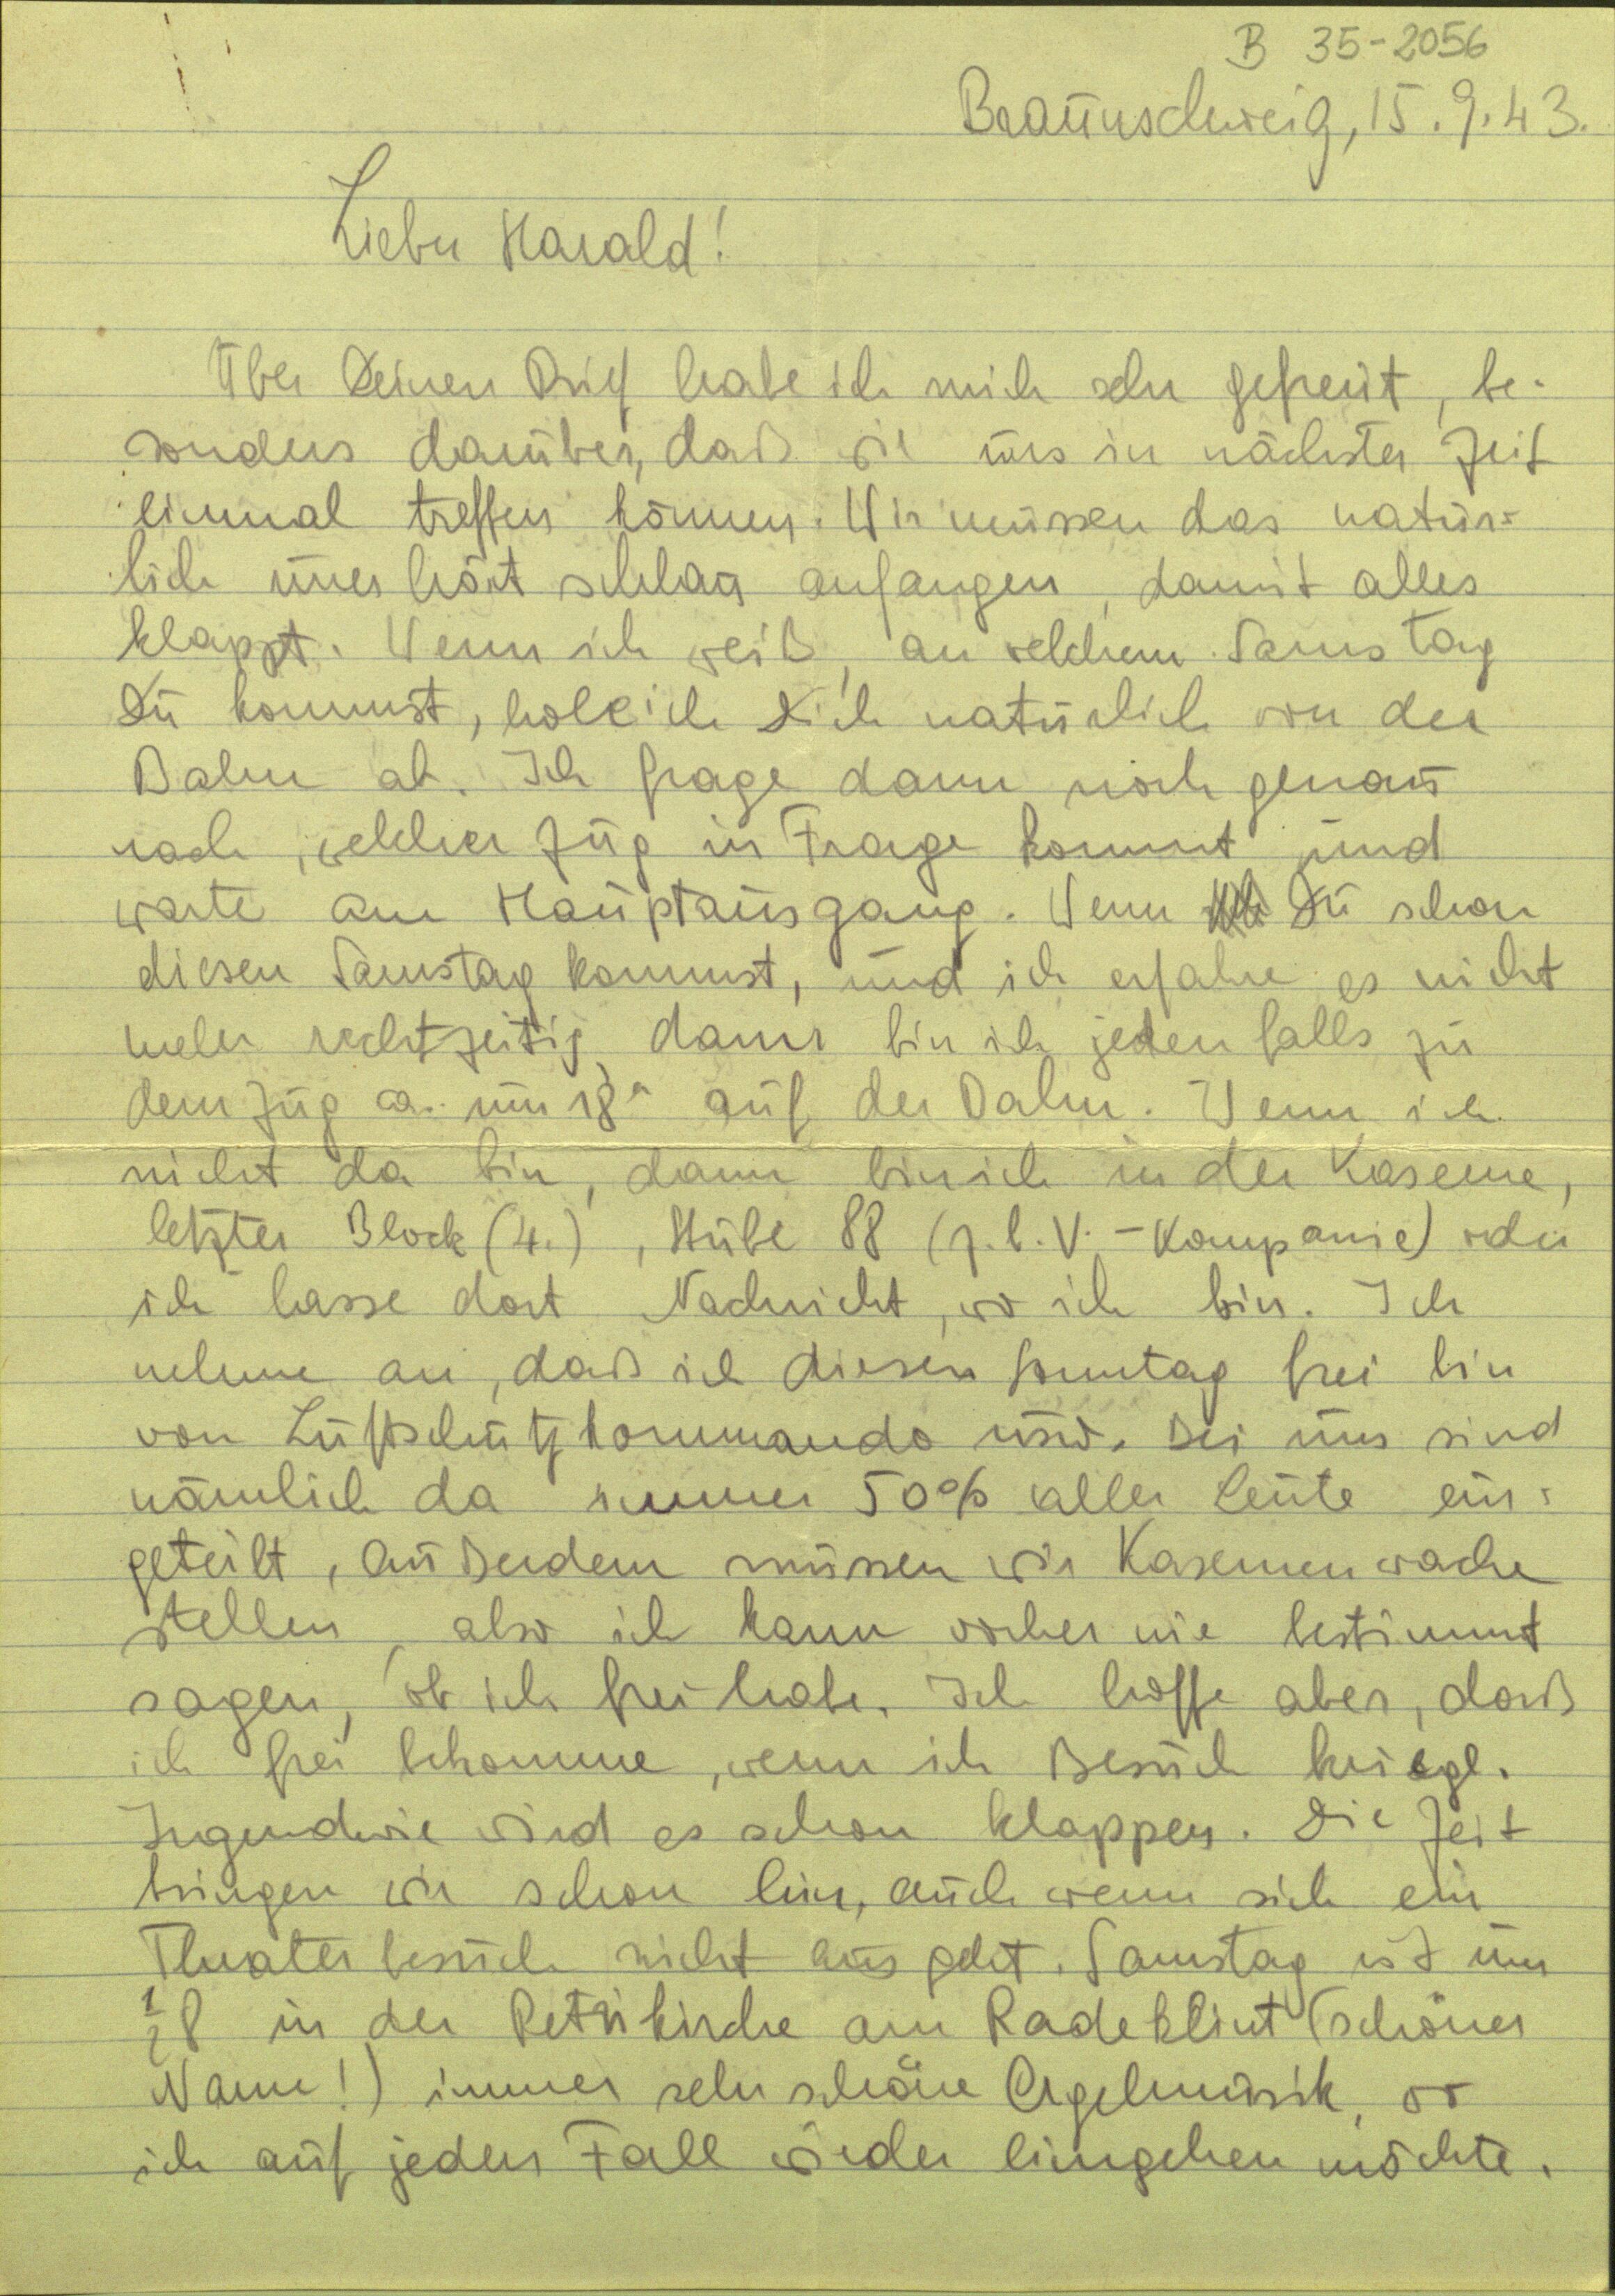 B 35-2056
Braunschweig, 15.9.43.
Lieber Harald!
Über Deinen Brief habe ich mich sehr gefreut, be-
sonders darüber, daß wir uns in nächster Zeit
einmal treffen können. Wir müssen das natür=
lich unerhört schlau anfangen, damit alles
klappt. Wenn ich weiß, an welchem Samstag
Du kommst, hole ich Dich natürlich von der
Bahn ab. Ich frage dann noch genau
nach, welcher Zug in Frage kommt und
warte am Hauptausgang. Wenn Du schon
diesen Samstag kommst, und ich erfahre es nicht
mehr rechtzeitig, dann bin ich jedenfalls zu
dem Zug ca. um 18ʰ auf der Bahn. Wenn ich
nicht da bin, dann bin ich in der Kaserne,
letzter Block (4.), Stube 88 (z.b.V.-Kompanie) oder
ich lasse dort Nachricht, wo ich bin. Ich
nehme an, daß ich diesen Sonntag frei bin
von Luftschutzkommando usw. Bei uns sind
nämlich da immer 50% aller Leute ein=
geteilt, außerdem müssen wir Kasernenwache
stellen, also ich kann vorher nie bestimmt
sagen, ob ich frei habe. Ich hoffe aber, daß
ich frei bekomme, wenn ich Besuch kriege.
Irgendwie wird es schon klappen. Die Zeit
bringen wir schon hin, auch wenn sich ein
Theaterbesuch nicht ausgeht. Samstag ist um
½8 in der Petrikirche am Radeklint (schöner
Name!) immer sehr schöne Orgelmusik, wo
ich auf jeden Fall wieder hingehen möchte.